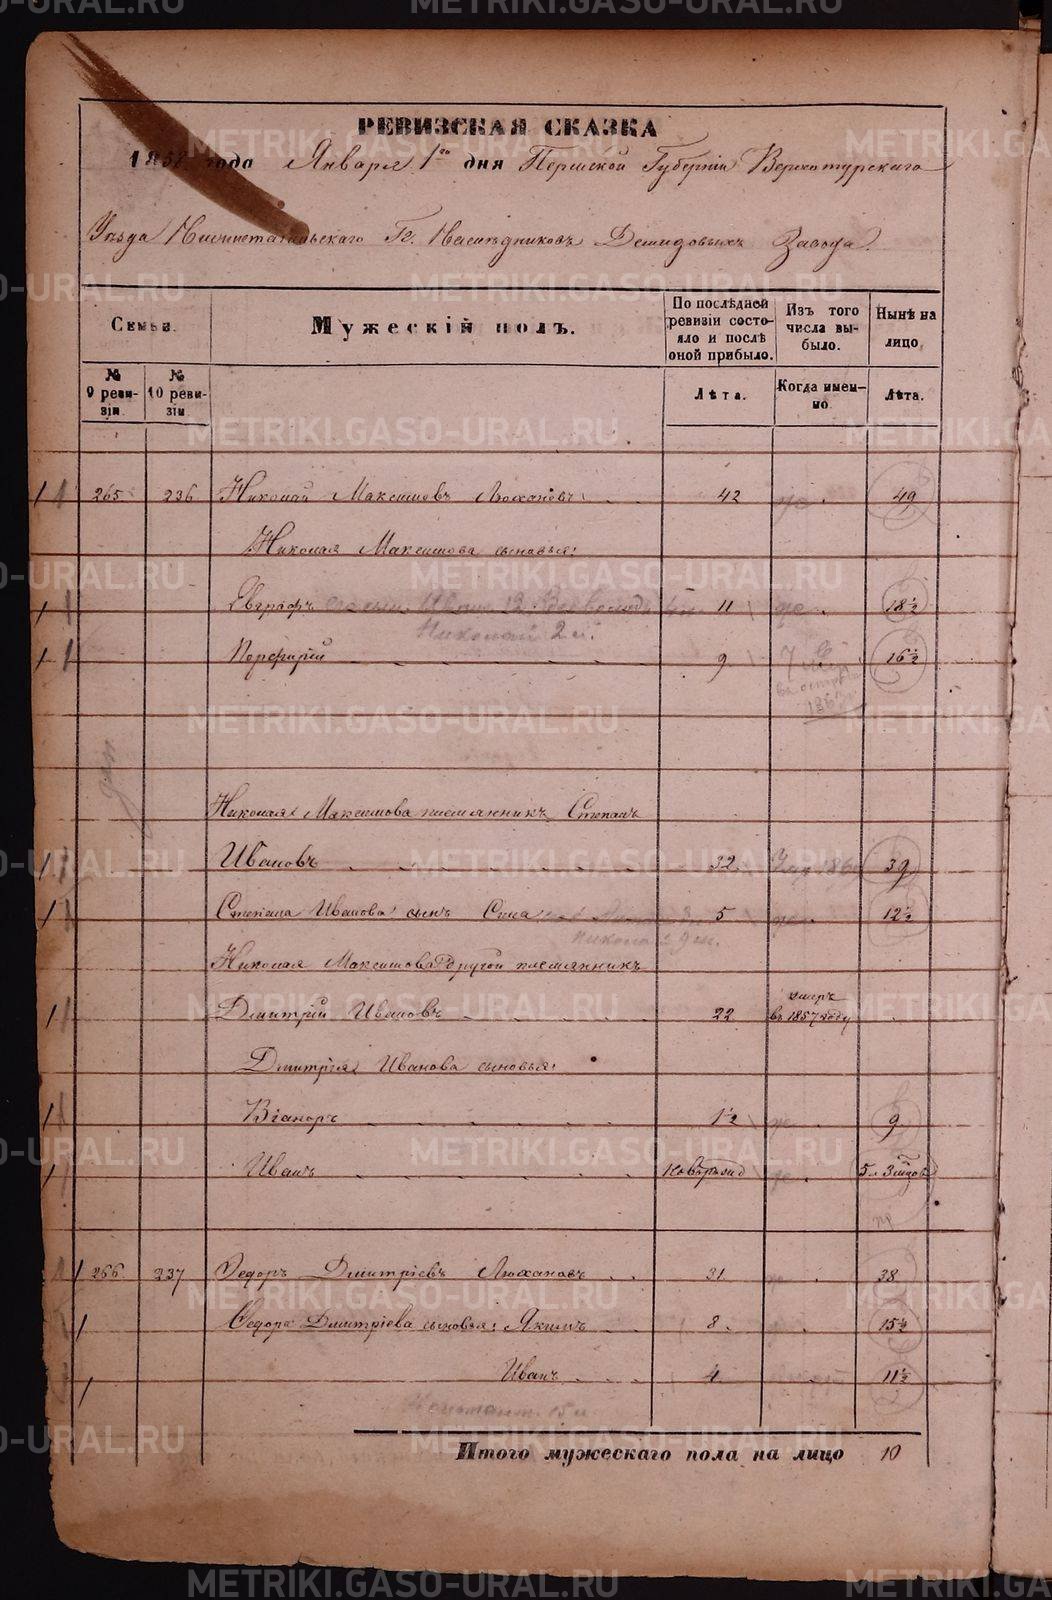 РЕВИЗСКАЯ СКАЗКА
1858 года Января 1го дня Пермской Губерніи Верхотурскаго
Уезда Нижнетагильскаго Гг. Наследниковъ Демидовыхъ Завода.
Семьи.
Мужескій полъ.
По послѣдней ревизіи состояло и послѣ оной прибыло.
Изъ того числа выбыло.
Нынѣ на лицо.
№ 9 ревизіи.
№ 10 ревизіи
Лѣта.
Когда именно.
Лѣта.
265 236 Николай Максимовъ Люхановъ 42 49
Николая Максимова сыновья:
Евграфъ 11 18½
Николай 2
Порфирій 9 16½
Николая Максимова племянникъ Степанъ
Ивановъ 32 39
Степана Иванова сынъ Сила 5 12½
Николая Максимова другой племянникъ
Дмитрій Ивановъ 22 умеръ въ 1857 году
Дмитрія Иванова сыновья:
Віаноръ 1½ 9
Иванъ новорожд 5 л 3 мцовъ
266 237 Федоръ Дмитріевъ Люхановъ 31 38
Федора Дмитріева сыновья: Якимъ 8 15½
Иванъ 4 11½
Итого мужескаго пола на лицо 10
METRIKI.GASO-URAL.RU